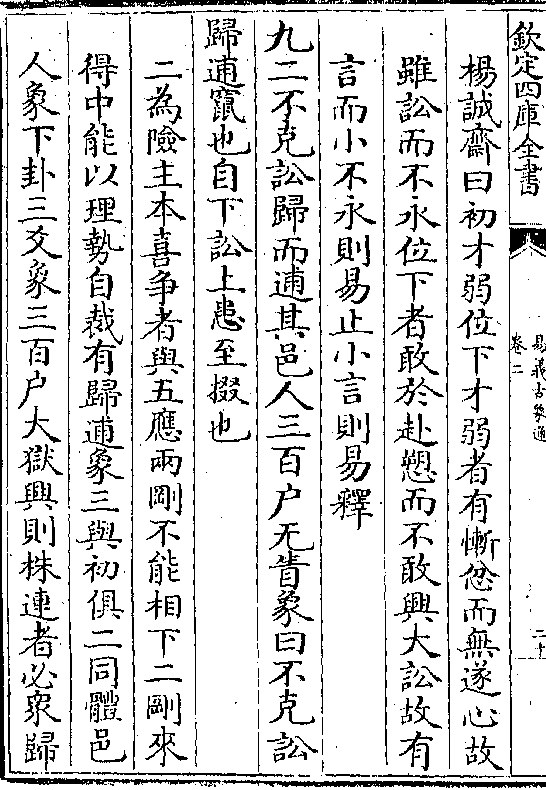 欽定四庫全書
易義古象通
卷二
楊誠齋曰初才弱位下才弱者有慚忿而無遂心故
雖訟而不永位下者敢於赴愬而不敢興大訟故有
言而小不永則易止小言則易釋
九二不克訟歸而逋其邑人三百户无眚象曰不克訟
歸逋竄也自下訟上患至掇也
二為險主本喜爭者與五應兩剛不能相下二剛來
得中能以理勢自裁有歸逋象三與初俱二同體邑
人象下卦三爻象三百户大獄興則株連者必衆歸